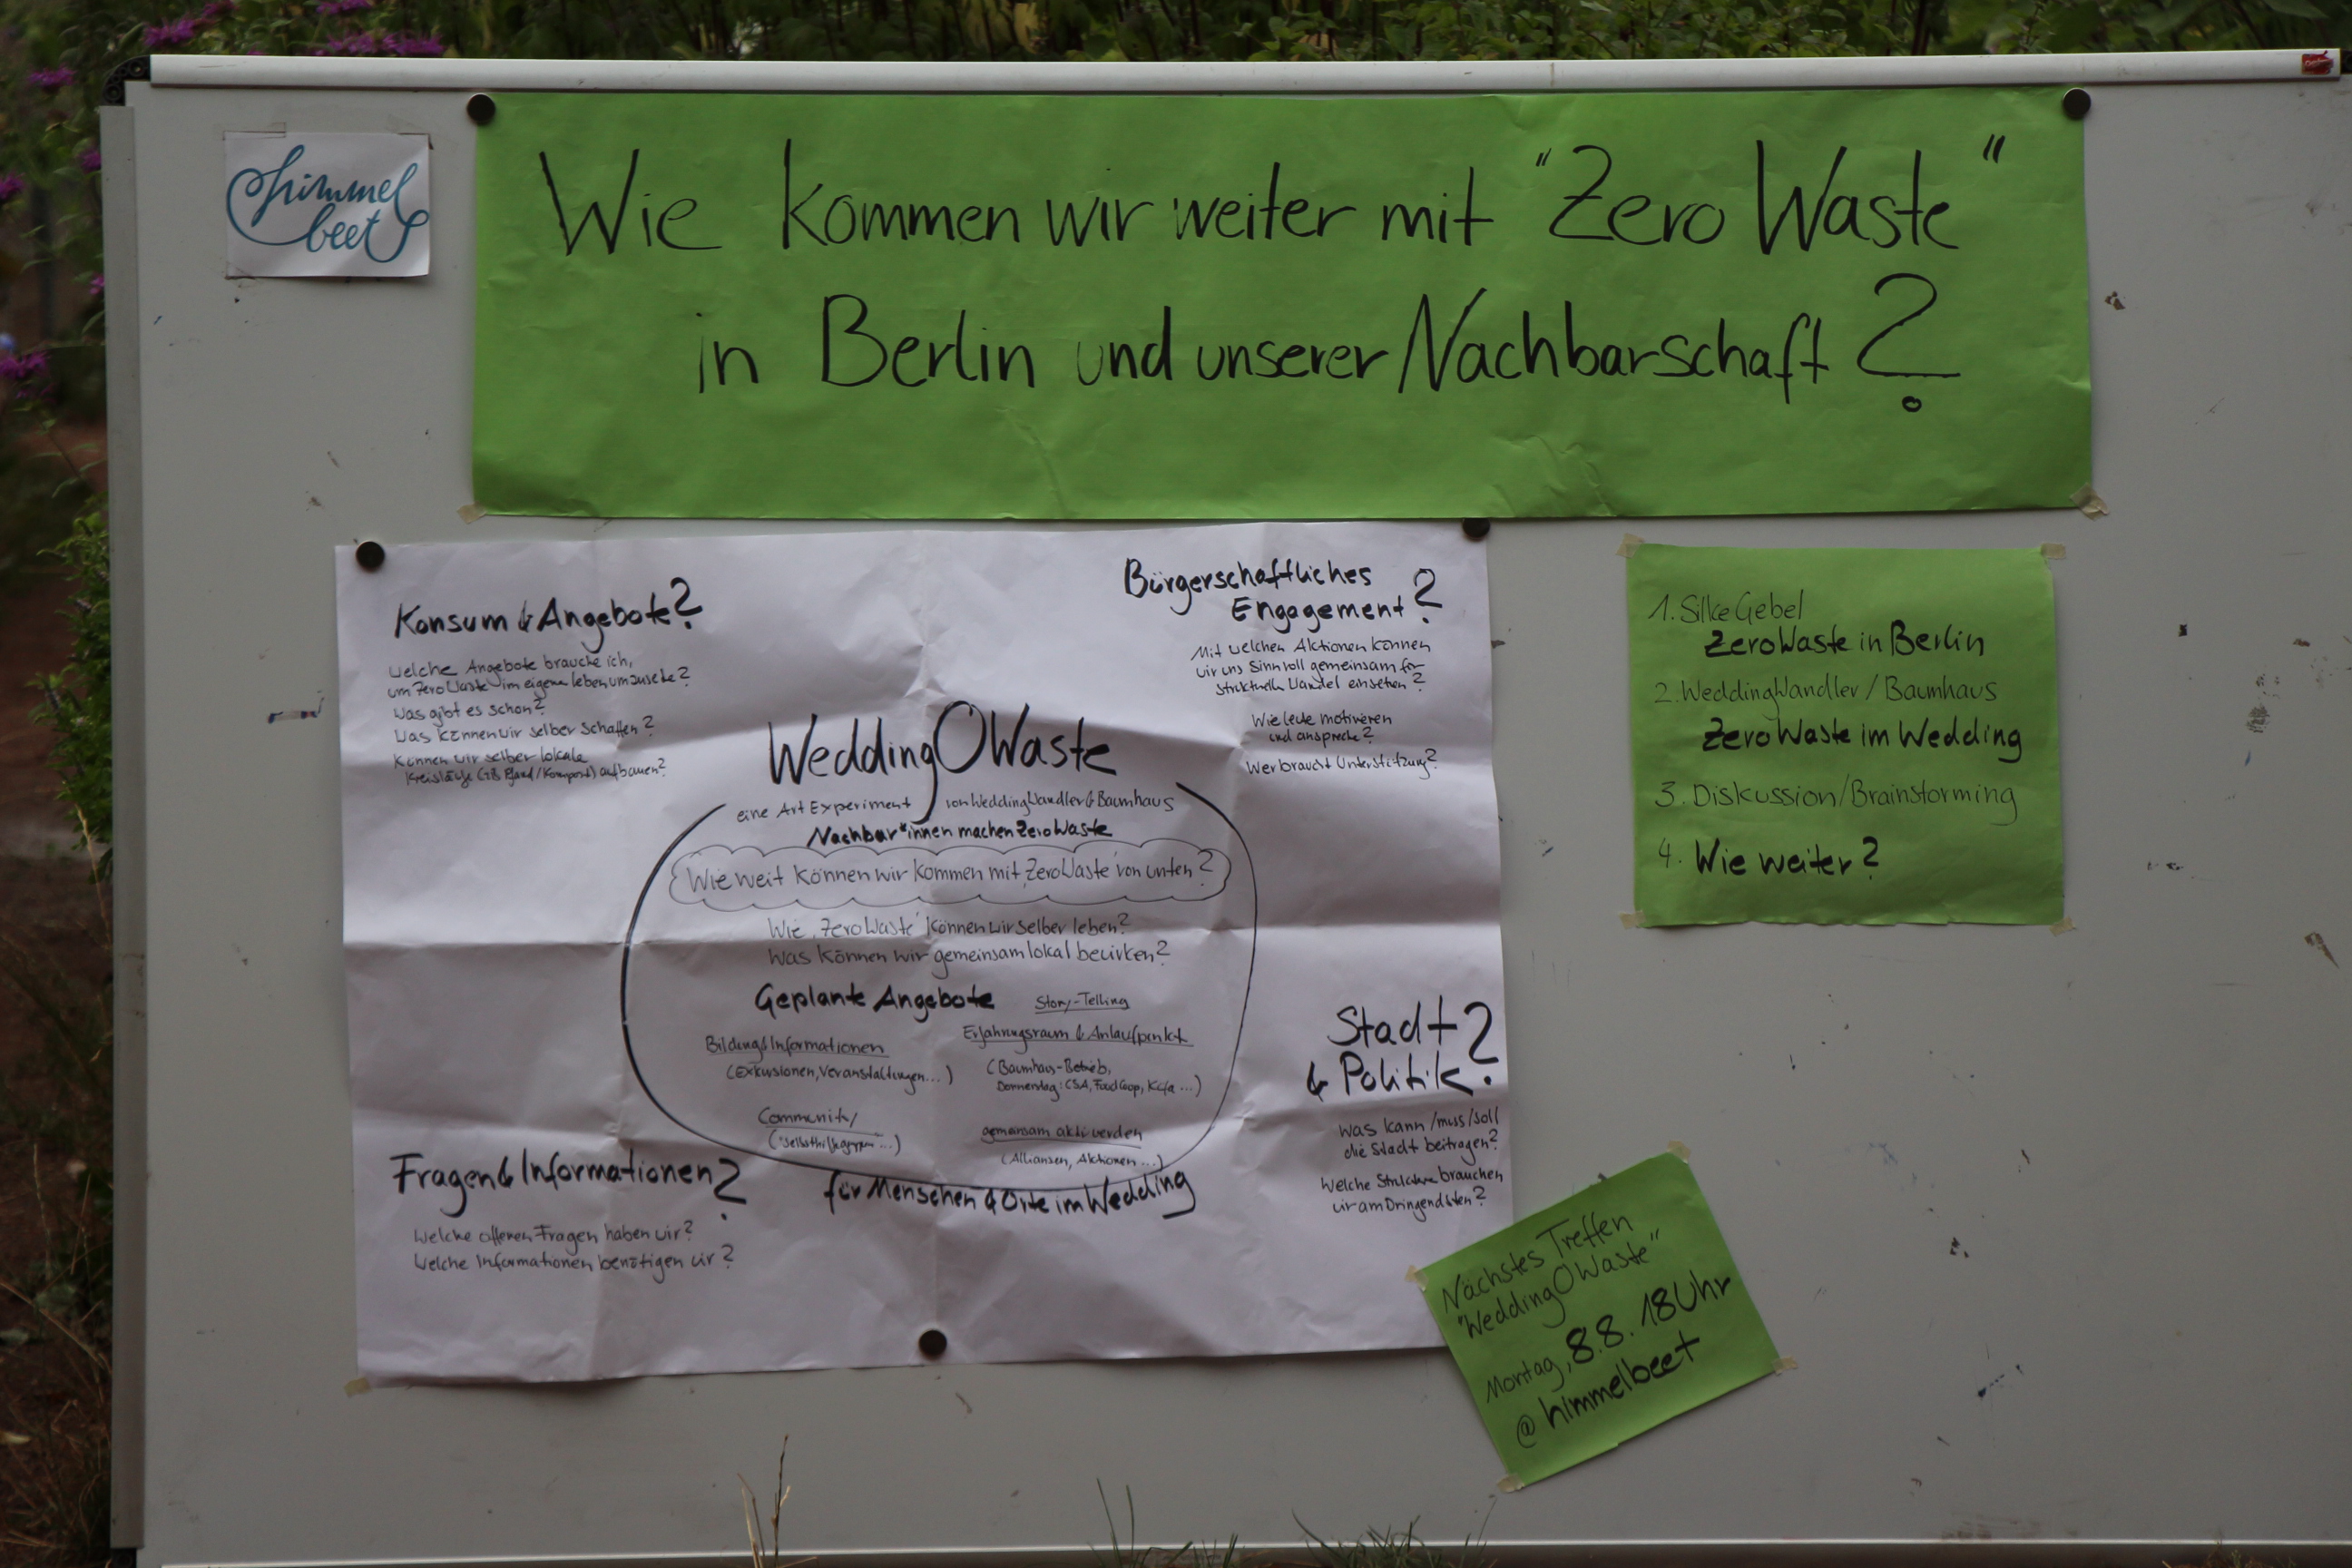 himmel
beet
Wie kommen wir weiter mit "Zero Waste"
in Berlin und unserer Nachbarschaft?
Konsum & Angebote?
Welche Angebote brauche ich,
um Zero Waste im eigenen Leben umzusetzen?
Was gibt es schon?
Was können wir selber schaffen?
Können wir selber lokale
Kreisläufe (zB Pfand/Kompost) aufbauen?
Bürgerschaftliches
Engagement?
Mit welchen Aktionen können
wir uns sinnvoll gemeinsam für
strukturellen Wandel einsetzen?
Wie Leute motivieren
und ansprechen?
Wer braucht Unterstützung?
Wedding0Waste
eine Art Experiment von WeddingWandler & Baumhaus
Nachbar*innen machen Zero Waste
Wie weit können wir kommen mit 'Zero Waste' von unten?
Wie 'Zero Waste' können wir selber leben?
Was können wir gemeinsam lokal bewirken?
Geplante Angebote
Story-Telling
Bildung & Informationen
(Exkursionen, Veranstaltungen...)
Erfahrungsraum & Anlaufpunkt
(Baumhaus-Betrieb,
Donnerstag: CSA, FoodCoop, Küfa...)
Community
(Selbsthilfegruppen...)
gemeinsam aktiv werden
(Allianzen, Aktionen...)
für Menschen & Orte im Wedding
Fragen & Informationen?
Welche offenen Fragen haben wir?
Welche Informationen benötigen wir?
Stadt
& Politik?
Was kann/muss/soll
die Stadt beitragen?
Welche Strukturen brauchen
wir am Dringendsten?
1. Silke Gebel
Zero Waste in Berlin
2. WeddingWandler / Baumhaus
Zero Waste im Wedding
3. Diskussion/Brainstorming
4. Wie weiter?
Nächstes Treffen
"Wedding0Waste"
Montag, 8.8. 18Uhr
@ himmelbeet